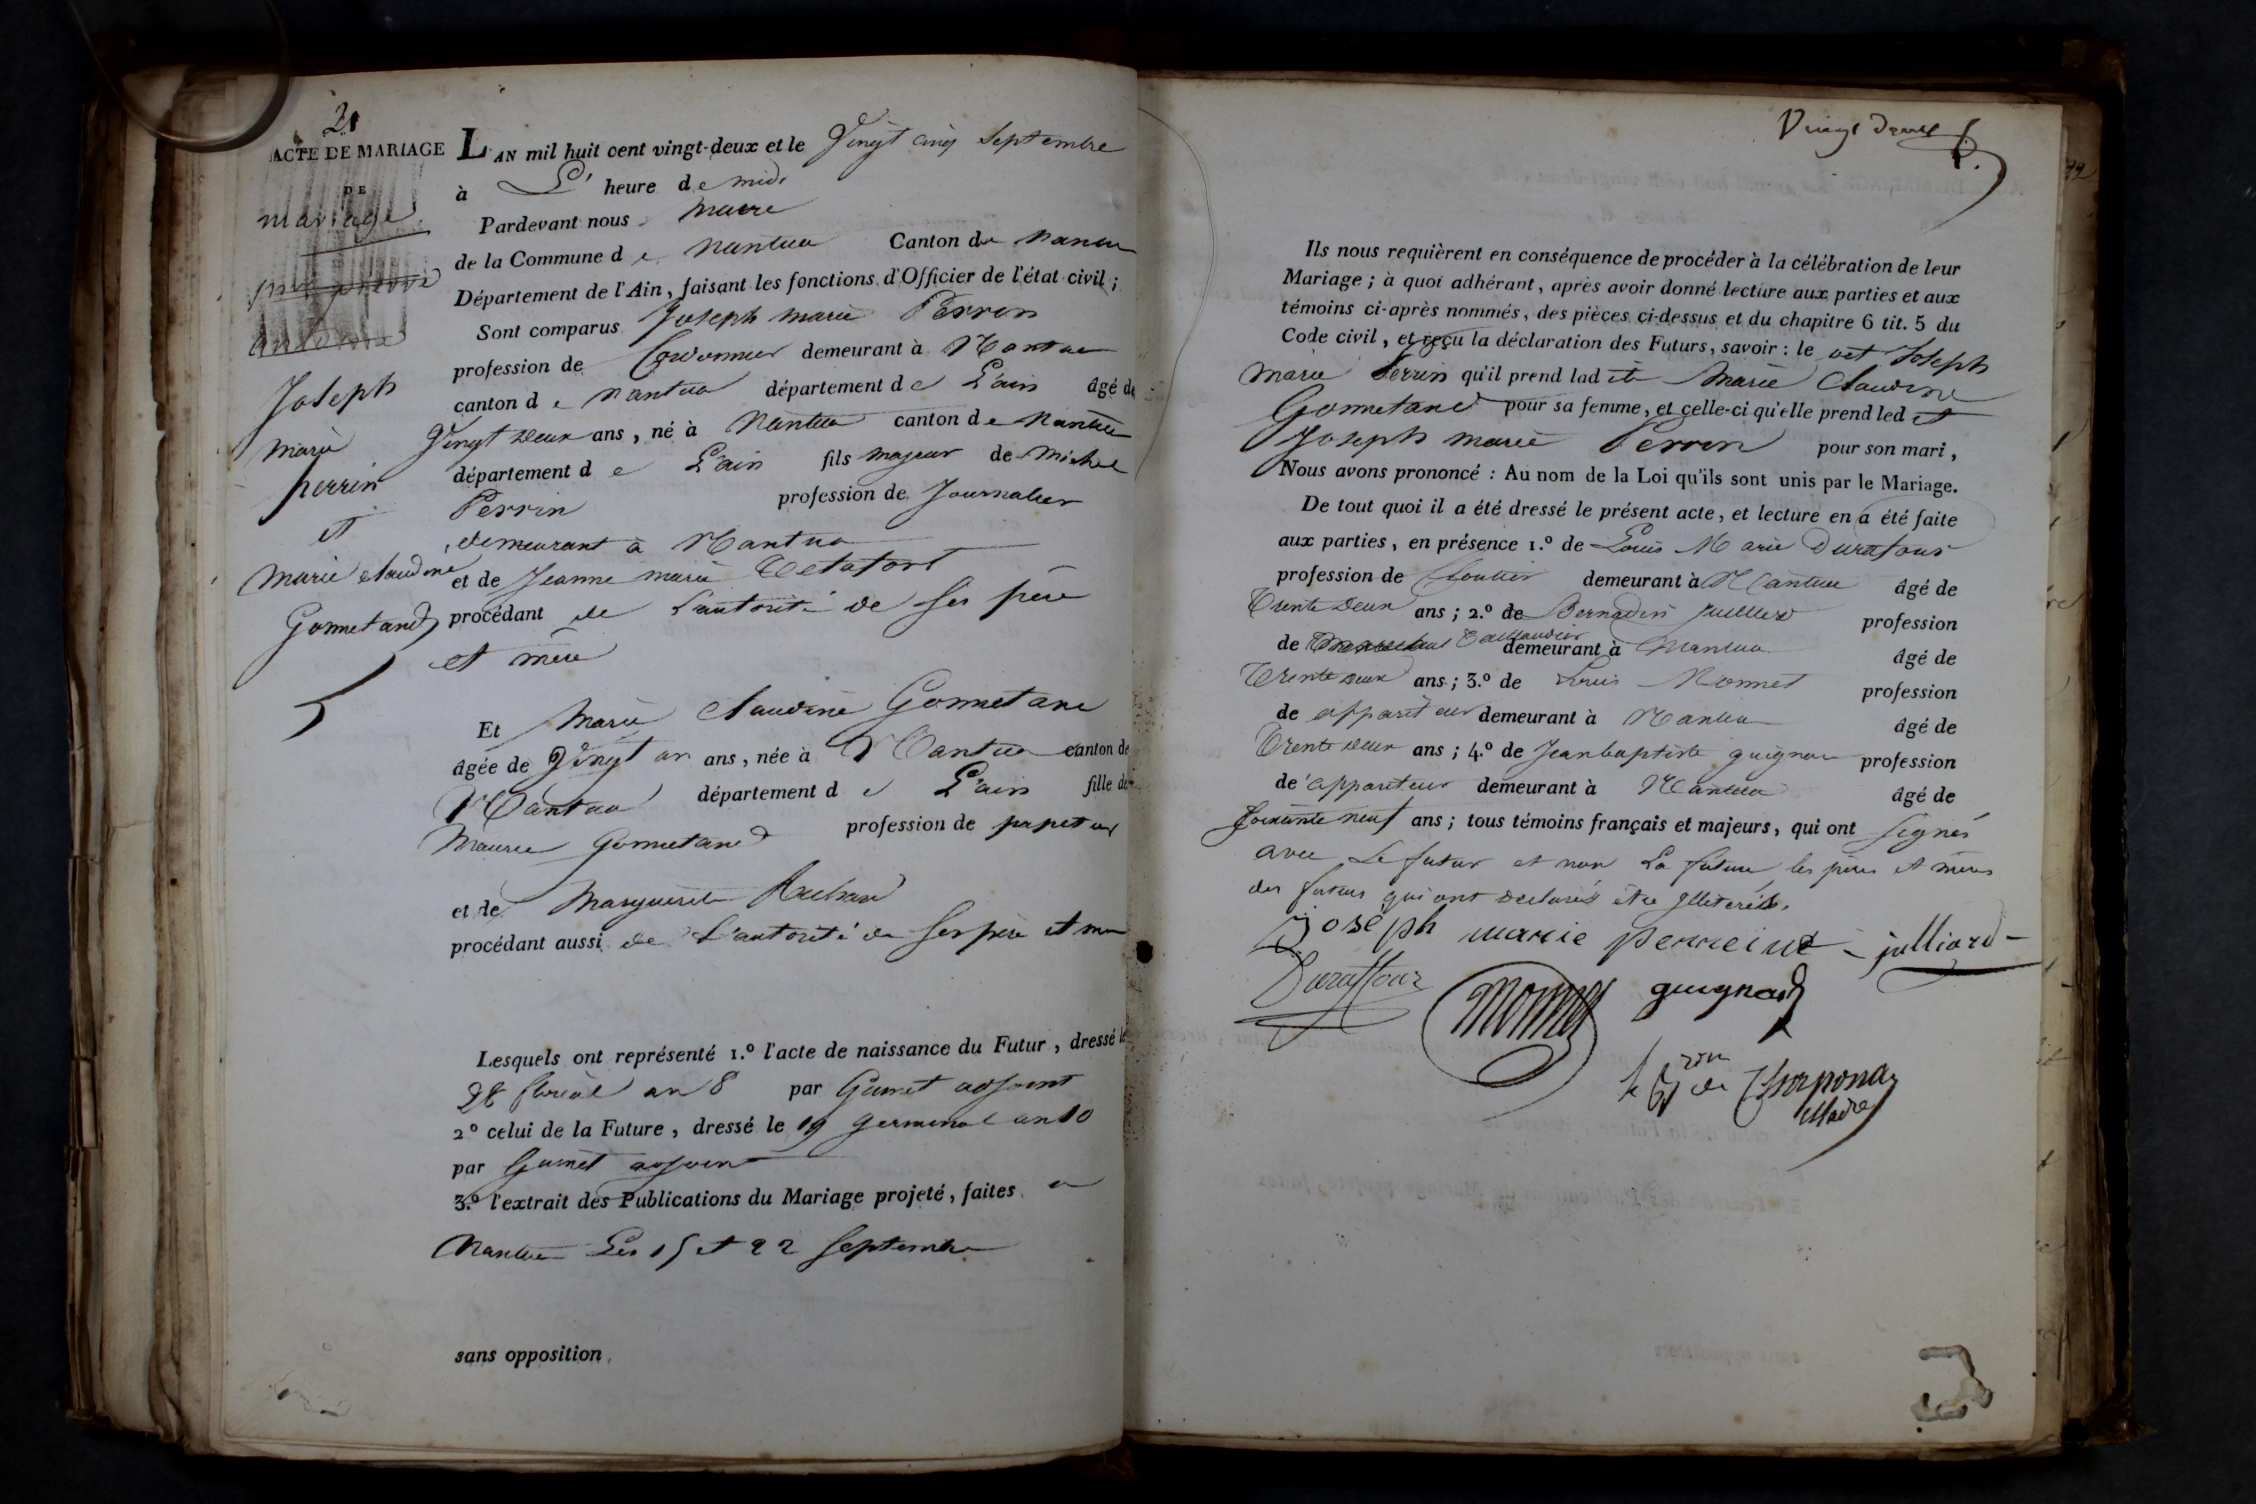 21
ACTE DE MARIAGE
DE
mariage
Joseph
marie
perrin
et
Marie claudine
Gonnetand
L'AN mil huit cent vingt-deux et le Vingt cinq Septembre
à L' heure de midi
Pardevant nous maire
de la Commune de nantua Canton de nantua
Département de l'Ain, faisant les fonctions d'Officier de l'état civil;
Sont comparus Joseph marie Perrin
profession de Cordonnier demeurant à Nantua
canton de nantua département de L'ain âgé de
Vingt deux ans, né à Nantua canton de Nantua
département de L'ain fils majeur de Michel
Perrin profession de Journalier
demeurant à Nantua
et de Jeanne marie
procédant de L'autorité de ses père
et mère
Et Marie Claudine Gonnetand
âgée de Vingt un ans, née à Nantua canton de
Nantua département de L'ain fille de
Maurice Gonnetand profession de papetier
et de Marguerite
procédant aussi de L'autorité de ses père et mere
Lesquels ont représenté 1.º l'acte de naissance du Futur, dressé le
28 floréal an 8 par Guinet adjoint
2º celui de la Future, dressé le 19 germinal an 10
par Guinet adjoint
3.º l'extrait des Publications du Mariage projeté, faites a
Nantua Les 15 et 22 Septembre
sans opposition
Vingt deux
22
Ils nous requièrent en conséquence de procéder à la célébration de leur
Mariage; à quoi adhérant, après avoir donné lecture aux parties et aux
témoins ci-après nommés, des pièces ci-dessus et du chapitre 6 tit. 5 du
Code civil, et reçu la déclaration des Futurs, savoir: le dit Joseph
Marie Perrin qu'il prend ladite Marie Claudine
Gonnetand pour sa femme, et celle-ci qu'elle prend ledit
Joseph marie Perrin pour son mari,
Nous avons prononcé: Au nom de la Loi qu'ils sont unis par le Mariage.
De tout quoi il a été dressé le présent acte, et lecture en a été faite
aux parties, en présence 1.º de Louis Marie Durafour
profession de Cloutier demeurant à Nantua âgé de
Trente deux ans; 2.º de Bernadin Juilliard profession
de Taillandier demeurant à Nantua âgé de
Trente deux ans; 3.º de Louis Monnet profession
de appariteur demeurant à Nantua âgé de
Trente deux ans; 4.º de Jeanbaptiste guignard profession
de appariteur demeurant à Nantua âgé de
Soixante neuf ans; tous témoins français et majeurs, qui ont signés
avec Le futur et non La future les pères et mères
des futurs qui ont declarés être illiterés.
joseph marie perreine julliard
Duraffour
monnet
guignard
le Bon de Thorponay
Maire